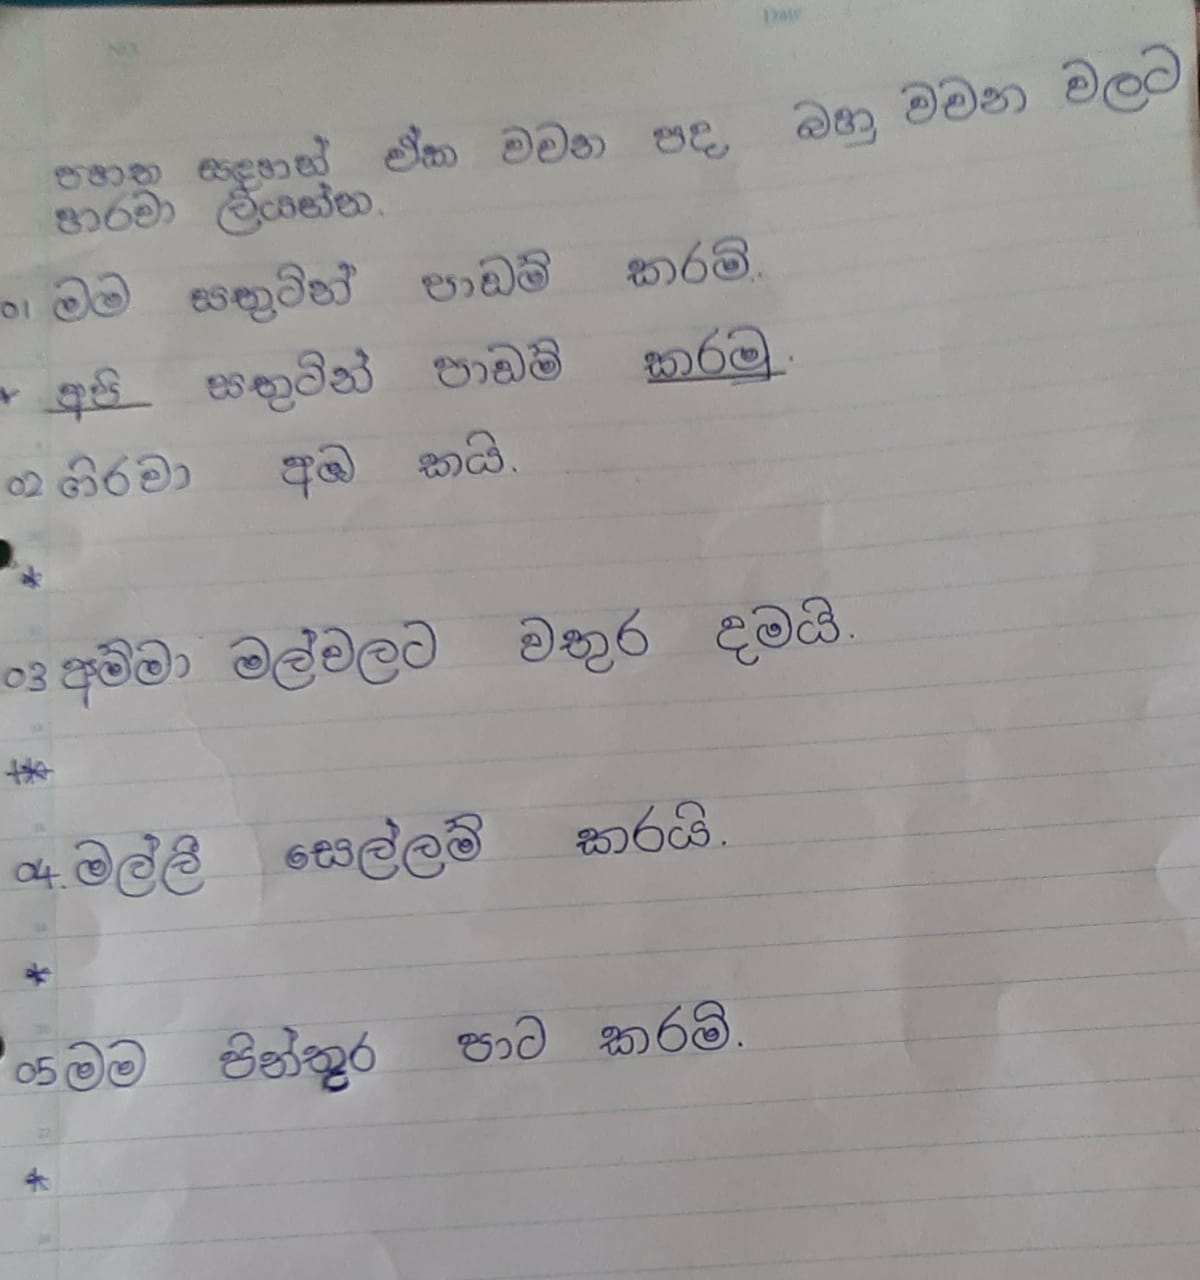 Date
NO.
පහත සඳහන් ඒක වචන පද බහු වචන වලට
හරවා ලියන්න.
01 මම සතුටින් පාඩම් කරමි.
* අපි සතුටින් පාඩම් කරමු.
02 ගිරවා අඹ කයි.
*
03 අම්මා මල්වලට වතුර දමයි.
**
04. මල්ලී සෙල්ලම් කරයි.
*
05 මම පින්තූර පාට කරමි.
*